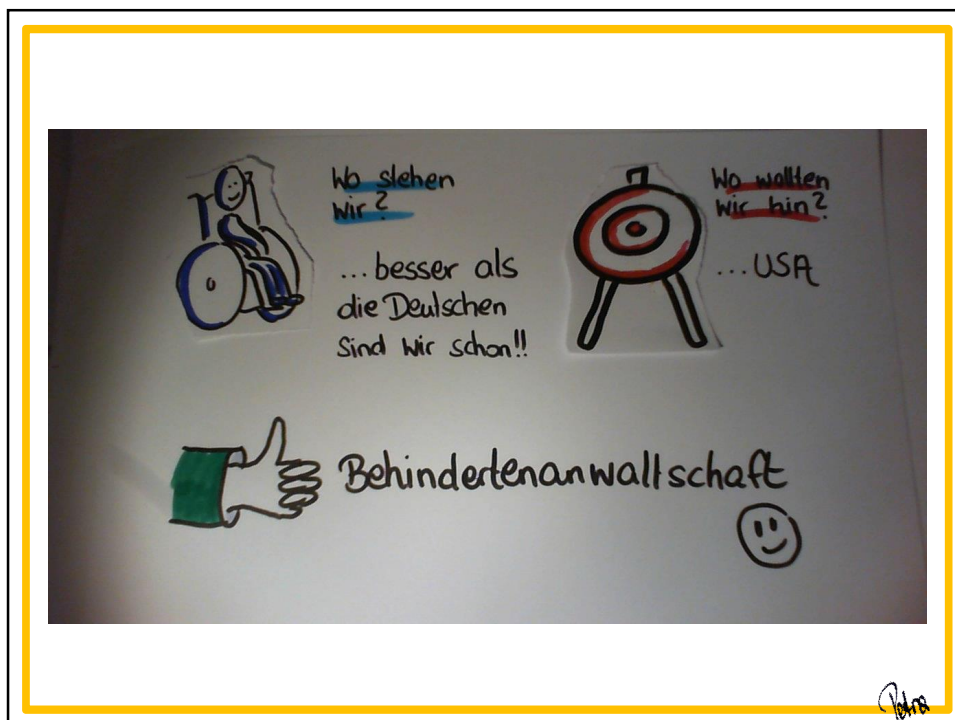 Wo stehen
wir?
...besser als
die Deutschen
sind wir schon!!
Wo wollten
wir hin?
...USA
Behindertenanwaltschaft
Petra